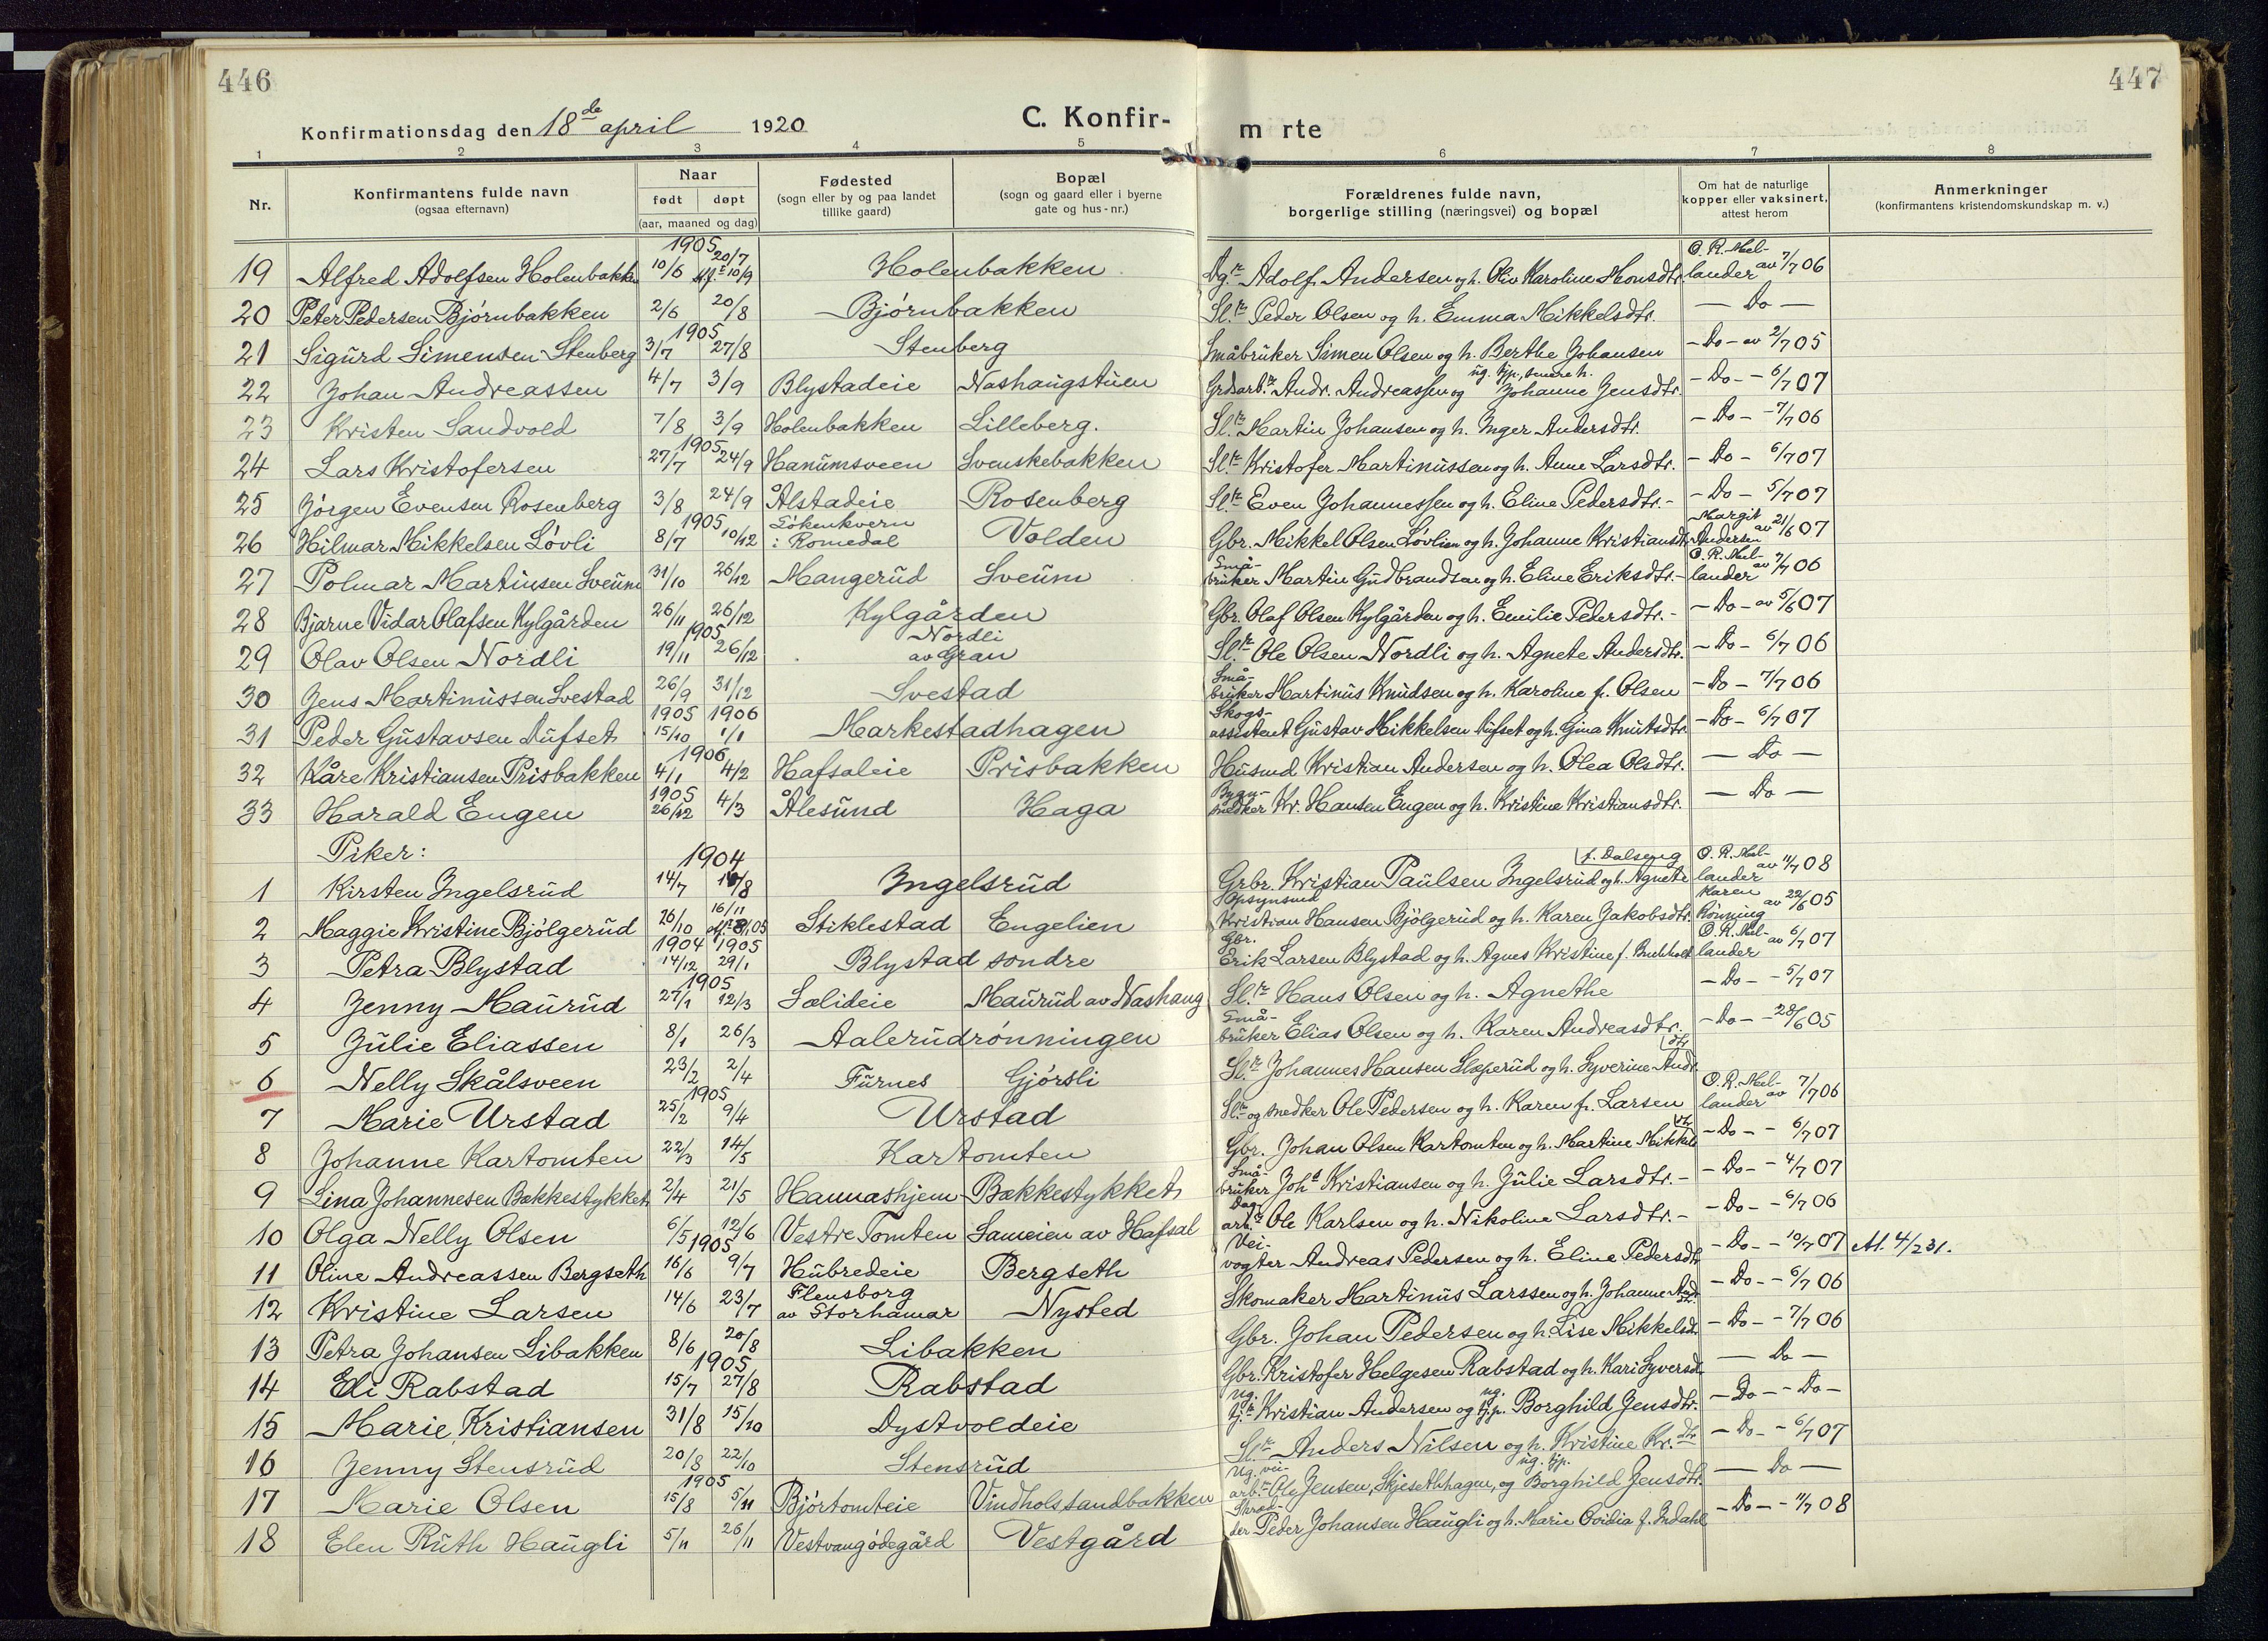 446
447
Konfirmationsdag den 18de april 1920
C. Konfir-
m rte
1 2 3 4 5 6 7 8
Nr.
Konfirmantens fulde navn
(ogsaa efternavn)
Naar
født døpt
(aar, maaned og dag)
Fødested
(sogn eller by og paa landet
tillike gaard)
Bopæl
(sogn og gaard eller i byerne
gate og hus-nr.)
Forældrenes fulde navn,
borgerlige stilling (næringsvei) og bopæl
Om hat de naturlige
kopper eller vaksinert,
attest herom
Anmerkninger
(konfirmantens kristendomskundskap m. v.)
19 Alfred Adolfsen Holenbakken 1905 10/6 20/7 10/9 Holenbakken Dg. Adolf Andersen og h. Oliv Karoline Monsdtr. O. R. Mellander av 7/7 06
20 Peter Pedersen Bjørnbakken 2/6 20/8 Bjørnbakken Sl. Peder Olsen og h. Emma Mikkelsdtr. — Do —
21 Sigurd Simensen Stenberg 1905 3/7 27/8 Stenberg Småbruker Simen Olsen og h. Berthe Johansen - Do - av 2/7 05
22 Johan Andreassen 4/7 3/9 Blystadeie Nashaugstuen Grdsarb. Andr. Andreassen og ug. tjp., senere h. Johanne Jensdtr. - Do - - 6/7 07
23 Kristen Sandvold 7/8 3/9 Holenbakken Lilleberg. Sl. Martin Johansen og h. Inger Andersdtr. - Do - - 7/7 06
24 Lars Kristofersen 1905 27/7 24/9 Hanumsveen Svenskebakken Sl. Kristofer Martinussen og h. Anne Larsdtr. - Do - 6/7 07
25 Jørgen Evensen Rosenberg 3/8 24/9 Ålstadeie Rosenberg Sl. Even Johannessen og h. Eline Pedersdtr. - Do - 5/7 07
26 Hilmar Mikkelsen Løvli 1905 8/7 10/12 Løkenkvern i Romedal Volden Gbr. Mikkel Olsen Løvlien og h. Johanne Kristiansdtr. Margit Andersen av 21/6 07
27 Polmar Martinsen Sveum 31/10 26/12 Mangerud Sveum Småbruker Martin Gudbrandsen og h. Eline Eriksdtr. O. R. Mellander av 7/7 06
28 Bjarne Vidar Olafsen Kylgården 26/11 26/12 Kylgården Gbr. Olaf Olsen Kylgården og h. Emilie Pedersdtr. - Do - av 5/6 07
29 Olav Olsen Nordli 1905 19/11 26/12 Nordli av Gran Sl. Ole Olsen Nordli og h. Agnete Andersdtr. - Do - 6/7 06
30 Jens Martinussen Svestad 26/9 31/12 Svestad Småbruker Martinus Knudsen og h. Karoline f. Olsen - Do - 7/7 06
31 Peder Gustavsen Aufset 1905 15/10 1906 1/1 Markestadhagen Skogsassistent Gustav Mikkelsen Aufset og h. Gina Knutsdtr. - Do - 6/7 07
32 Kåre Kristiansen Prisbakken 1906 4/1 4/2 Hafsaleie Prisbakken Husmd Kristian Andersen og h. Olea Olsdtr. — Do —
33 Harald Engen 1905 26/12 4/3 Ålesund Haga Bygnsnedker Kr. Hansen Engen og h. Kristine Kristiansdtr. — Do —
Piker:
1 Kirsten Ingelsrud 1904 14/7 14/8 Ingelsrud Grbr. Kristian Paulsen Ingelsrud og h. Agnete f. Dalseng O. R. Mellander av 11/7 08
2 Maggie Kristine Bjølgerud 26/10 16/11 05 Stiklestad Engelien Opsynsmd Kristian Hansen Bjølgerud og h. Karen Jakobsdtr. Karen Rønning av 22/6 05
3 Petra Blystad 1904 14/12 1905 29/1 Blystad søndre Gbr. Erik Larsen Blystad og h. Agnes Kristine f. O. R. Mellander av 6/7 07
4 Jenny Maurud 1905 27/1 12/3 Sælideie Maurud av Nashaug Sl. Hans Olsen og h. Agnethe - Do - - 5/7 07
5 Julie Eliassen 8/1 26/3 Aalerudrønningen Småbruker Elias Olsen og h. Karen Andreasdtr. - Do - - 28/6 05
6 Nelly Skålsveen 23/2 2/4 Furnes Gjørsli Sl. Johannes Hansen Slæperud og h. Syverine Andr.dtr
7 Marie Urstad 1905 25/2 9/4 Urstad Sl. og snedker Ole Pedersen og h. Karen f. Larsen O. R. Mellander av 7/7 06
8 Johanne Kartomten 22/3 14/5 Kartomten Gbr. Johan Olsen Kartomten og h. Martine Mikkels - Do - - 6/7 07
9 Lina Johannesen Bækkestykket 2/4 21/5 Hannashjem Bækkestykket Småbruker Johs Kristiansen og h. Julie Larsdtr. - Do - - 4/7 07
10 Olga Nelly Olsen 6/5 12/6 Vestre Tomten Sameien av Hafsal Dagarb. Ole Karlsen og h. Nikoline Larsdtr. - Do - - 6/7 06
11 Oline Andreassen Bergseth 1905 16/6 9/7 Hubredeie Bergseth Veivogter Andreas Pedersen og h. Eline Pedersdtr - Do - - 10/7 07 At. 4/2 31.
12 Kristine Larsen 14/6 23/7 Flensborg av Storhamar Nysted Skomaker Martinus Larssen og h. Johanne And.dtr. - Do - - 6/7 06
13 Petra Johansen Libakken 8/6 20/8 Libakken Gbr. Johan Pedersen og h. Lise Mikkelsd. - Do - - 7/7 06
14 Eli Rabstad 1905 15/7 27/8 Rabstad Gbr. Kristofer Helgesen Rabstad og h. Kari Syversd — Do —
15 Marie Kristiansen 31/8 15/10 Dystvoldeie ug. tj. Kristian Andersen og ug. tj.p. Borghild Jensdtr. - Do - - Do -
16 Jenny Stensrud 20/8 22/10 Stensrud Sl. Anders Nilsen og h. Kristine Kr.dtr - Do - - 6/7 07
17 Marie Olsen 1905 15/8 5/11 Bjørtomteie Vindholssandbakken Ug. veiarb. Ole Jensen, Skjesethhagen, og ug. tjp. Borghild Jensdtr. — Do —
18 Elen Ruth Haugli 5/11 26/11 Vestvangødegård Vestgård Skrædder Peder Johansen Haugli og h. Marie Ovidia f. Indahl - Do - - 11/7 08